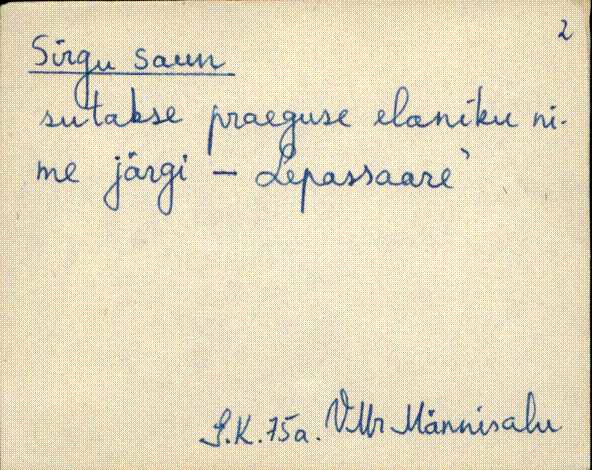 2
Sirgu saun
sutakse praeguse elaniku ni-
me järgi – Lepassaare`
S.K. 75a. VMr Männisalu